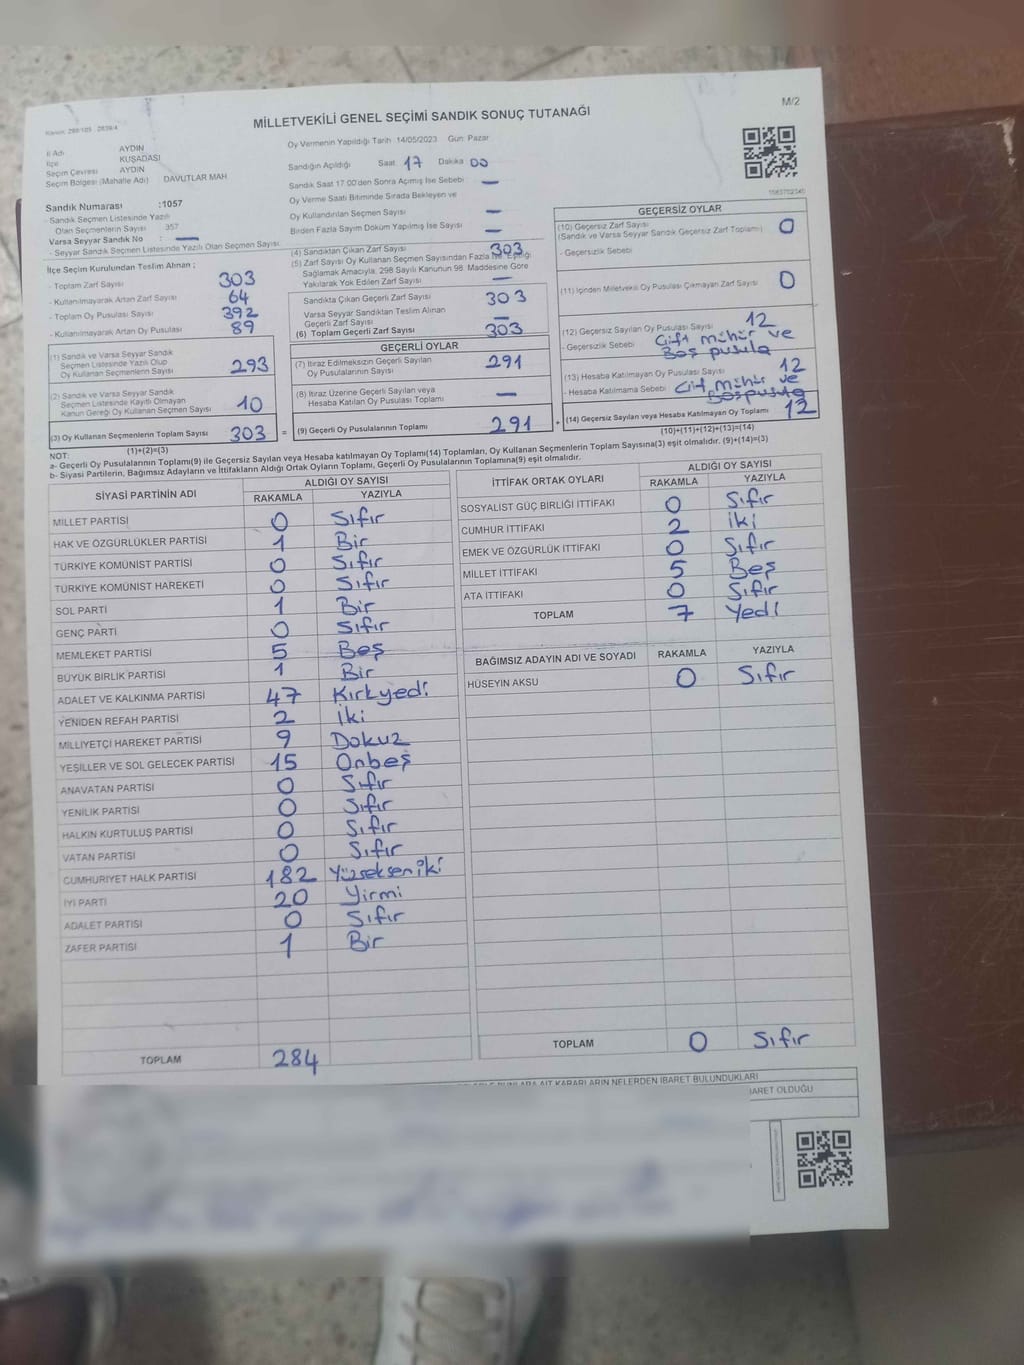 M/2
MİLLETVEKİLİ GENEL SEÇİMİ SANDIK SONUÇ TUTANAĞI
İl Adı AYDIN
İlçe KUŞADASI
Seçim Çevresi AYDIN
Seçim Bölgesi (Mahalle Adı) DAVUTLAR MAH
Sandık Numarası :1057
- Sandık Seçmen Listesinde Yazılı
Olan Seçmenlerin Sayısı 357
Varsa Seyyar Sandık No : —
- Seyyar Sandık Seçmen Listesinde Yazılı Olan Seçmen Sayısı
Oy Vermenin Yapıldığı Tarih 14/05/2023 Gün: Pazar
Sandığın Açıldığı Saat 17 Dakika 00
Sandık Saat 17:00'den Sonra Açılmış İse Sebebi —
Oy Verme Saati Bitiminde Sırada Bekleyen ve
Oy Kullandırılan Seçmen Sayısı —
Birden Fazla Sayım Döküm Yapılmış İse Sayısı —
İlçe Seçim Kurulundan Teslim Alınan ;
- Toplam Zarf Sayısı 303
- Kullanılmayarak Artan Zarf Sayısı 64
- Toplam Oy Pusulası 392
- Kullanılmayarak Artan Oy Pusulası 89
(1) Sandık ve Varsa Seyyar Sandık
Seçmen Listesinde Yazılı Olup
Oy Kullanan Seçmenlerin Sayısı 293
(2) Sandık ve Varsa Seyyar Sandık
Seçmen Listesinde Kayıtlı Olmayan
Kanun Gereği Oy Kullanan Seçmen Sayısı 10
(3) Oy Kullanan Seçmenlerin Toplam Sayısı 303 =
(1)+(2)=(3)
(4) Sandıktan Çıkan Zarf Sayısı 303
(5) Zarf Sayısı Oy Kullanan Seçmen Sayısından Fazla İse, Eşitliği
Sağlamak Amacıyla, 298 Sayılı Kanunun 98. Maddesine Göre
Yakılarak Yok Edilen Zarf Sayısı —
Sandıkta Çıkan Geçerli Zarf Sayısı 303
Varsa Seyyar Sandıktan Teslim Alınan
Geçerli Zarf Sayısı —
(6) Toplam Geçerli Zarf Sayısı 303
GEÇERLİ OYLAR
(7) İtiraz Edilmeksizin Geçerli Sayılan
Oy Pusulalarının Sayısı 291
(8) İtiraz Üzerine Geçerli Sayılan veya
Hesaba Katılan Oy Pusulası Toplamı —
(9) Geçerli Oy Pusulalarının Toplamı 291 +
GEÇERSİZ OYLAR
(10) Geçersiz Zarf Sayısı
(Sandık ve Varsa Seyyar Sandık Geçersiz Zarf Toplamı) 0
- Geçersizlik Sebebi
(11) İçinden Milletvekili Oy Pusulası Çıkmayan Zarf Sayısı 0
(12) Geçersiz Sayılan Oy Pusulası Sayısı 12
- Geçersizlik Sebebi Çift mühür ve
Boş pusula
(13) Hesaba Katılmayan Oy Pusulası Sayısı 12
- Hesaba Katılmama Sebebi Çift mühür ve
Boş pusula
(14) Geçersiz Sayılan veya Hesaba Katılmayan Oy Toplamı 12
(10)+(11)+(12)+(13)=(14)
NOT:
a- Geçerli Oy Pusulalarının Toplamı(9) ile Geçersiz Sayılan veya Hesaba katılmayan Oy Toplamı(14) Toplamları, Oy Kullanan Seçmenlerin Toplam Sayısına(3) eşit olmalıdır. (9)+(14)=(3)
b- Siyasi Partilerin, Bağımsız Adayların ve İttifakların Aldığı Ortak Oyların Toplamı, Geçerli Oy Pusulalarının Toplamına(9) eşit olmalıdır.
SİYASİ PARTİNİN ADI ALDIĞI OY SAYISI
RAKAMLA YAZIYLA
MİLLET PARTİSİ 0 Sıfır
HAK VE ÖZGÜRLÜKLER PARTİSİ 1 Bir
TÜRKİYE KOMÜNİST PARTİSİ 0 Sıfır
TÜRKİYE KOMÜNİST HAREKETİ 0 Sıfır
SOL PARTİ 1 Bir
GENÇ PARTİ 0 Sıfır
MEMLEKET PARTİSİ 5 Beş
BÜYÜK BİRLİK PARTİSİ 1 Bir
ADALET VE KALKINMA PARTİSİ 47 Kırkyedi
YENİDEN REFAH PARTİSİ 2 İki
MİLLİYETÇİ HAREKET PARTİSİ 9 Dokuz
YEŞİLLER VE SOL GELECEK PARTİSİ 15 Onbeş
ANAVATAN PARTİSİ 0 Sıfır
YENİLİK PARTİSİ 0 Sıfır
HALKIN KURTULUŞ PARTİSİ 0 Sıfır
VATAN PARTİSİ 0 Sıfır
CUMHURİYET HALK PARTİSİ 182 Yüzsekseniki
İYİ PARTİ 20 Yirmi
ADALET PARTİSİ 0 Sıfır
ZAFER PARTİSİ 1 Bir
TOPLAM 284
İTTİFAK ORTAK OYLARI ALDIĞI OY SAYISI
RAKAMLA YAZIYLA
SOSYALİST GÜÇ BİRLİĞİ İTTİFAKI 0 Sıfır
CUMHUR İTTİFAKI 2 iki
EMEK VE ÖZGÜRLÜK İTTİFAKI 0 Sıfır
MİLLET İTTİFAKI 5 Beş
ATA İTTİFAKI 0 Sıfır
TOPLAM 7 Yedi
BAĞIMSIZ ADAYIN ADI VE SOYADI RAKAMLA YAZIYLA
HÜSEYİN AKSU 0 Sıfır
TOPLAM 0 Sıfır
KARARLARIN NELERDEN İBARET BULUNDUKLARI
İBARET OLDUĞU